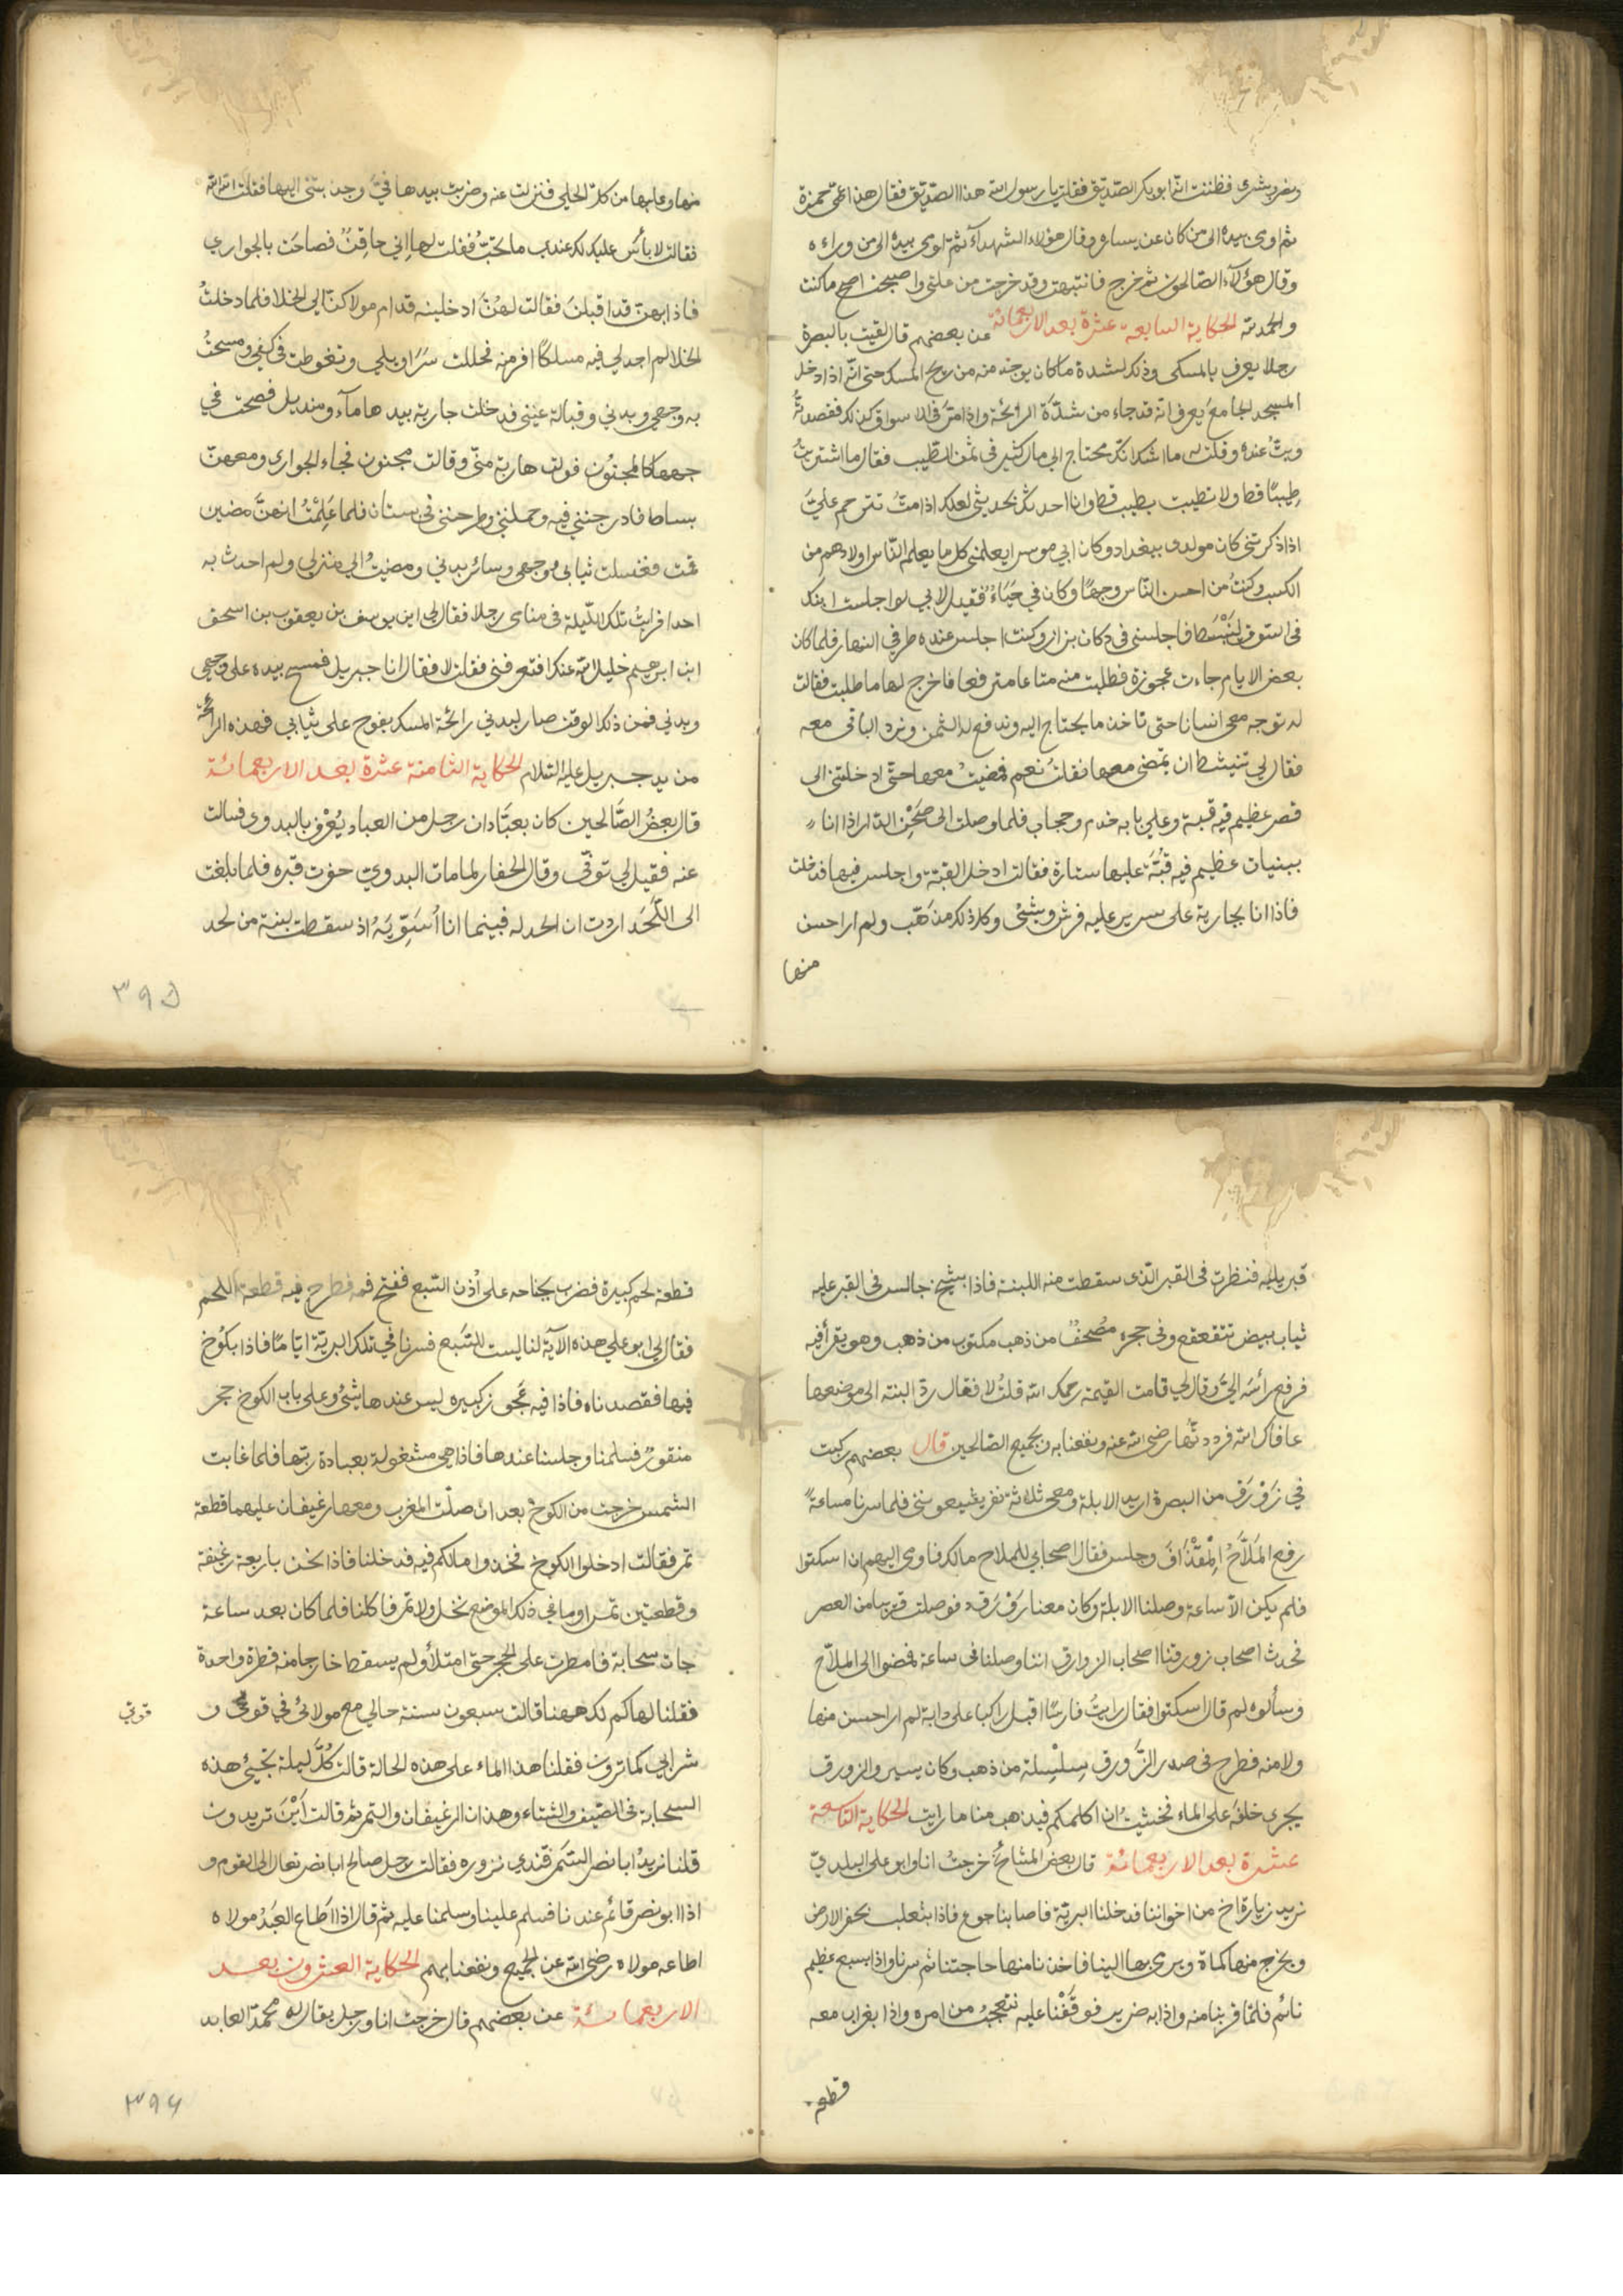 وبضر بشرى فظننت انه ابو بكر الصديق فقلت يا رسول الله هذا الصديق فقال هذا عمي حمزة
ثم اومى بيده الى من كان عن يساره وقال هؤلاء الشهدآء ثم اومى بيده الى من وراءه
وقال هؤلاء الصالحون ثم خرج فانتبهت وقد خرجت من علتي واصبحت اصح ما كنت
والحمد لله الحكاية السابعة عشرة بعد الاربعمائة عن بعضهم قال لقيت بالبصرة
رجلا يعرف بالمسكي وذلك لشدة ما كان يوجد منه من ريح المسك حتى انه اذا دخل
المسجد الجامع يعرف انه قد جاء من شدّة الرائحة واذا مرّ في الاسواق كذلك فقصدتُه
وبتّ عنده وقلت له ما اشك انك محتاج الى مال كثير في ثمن الطيب فقال ما اشتريتُ
طِيبًا قط ولا تطيبت بطيب قط وانا احدثك بحديثي لعلك اذا متُ تترحم عليّ
اذا ذكرتني كان مولدي ببغداد وكان ابي موسرا يعلمني كل ما يعلم الناس اولادهم من
الكسب وكنتُ من احسن النّاس وجهًا وكان فيّ حَيَاءٌ فقيل لابي لو اجلست ابنك
في السوق لينبسط فاجلسني في دكان بزاز وكنت اجلس عنده طرفي النهار فلما كان
بعض الايام جاءت عجوزة فطلبت منه متاعا مترفعا فاخرج لها ما طلبت فقالت
له توجه معي انسانا حتى ناخذ ما يحتاج اليه وندفع له الثمن ونرد الباقي معه
فقال لي تنبسط ان تمضي معها فقلتُ نعم فمضيتُ معها حتى ادخلتني الى
قصر عظيم فيه قبة وعلى بابه خدم وحجاب فلما وصلت الى صَحْنِ الدار اذا انا
ببنيان عظيم فيه قبّة عليها ستارة فقالت ادخل القبة واجلس فيها فدخلت
فاذا انا بجارية على سرير عليه فرش وبشئ وكل ذلك مذهّب ولم ار احسن
منها
منها وعليها من كل الحلي فنزلت عنه وضربت بيدها فيّ وجذبتني اليها فقلت الله الله
فقالت لا بأس عليك لك عندي ما تحبّ فقلت لها اني حاقِنٌ فصاحت بالجواري
فاذا بهن قد اقبلن فقالت لهنّ ادخلينه قدام مولاكنّ الى الخلا فلما دخلتُ
الخلا لم اجد لي فيه مسلكًا افر منه فحللت سَرَاويلي وتغوطت في كفي ومسحتُ
به وجهي وبدني وقبالة عيني فدخلت جارية بيدها مآء ومنديل فصحت في
جهها كالمجنُون فولت هاربة منّي وقالت مجنون فجاء الجواري ومعهنّ
بساط فادرجنني فيه وحملنني وطرحنني في بستان فلما عَلِمْتُ انهنّ مضين
قمت فغسلت ثيابي ووجهي وسائر بدني ومضيتُ الى منزلي ولم احدث به
احدا فرايتُ تلك الليلة في منامي رجلا فقال لي اين يوسف بن يعقوب بن اسحق
ابن ابرهيم خليل الله عنك افتعرفني فقلت لا فقال انا جبريل فمسح بيده على وجهي
وبدني فمن ذلك الوقت صار لبدني رائحة المسك يفوح على ثيابي فهذه الرائحة
من يد جبريل عليه السّلام الحكاية الثامنة عشرة بعد الاربعمائة
قال بعضُ الصّالحين كان بعبّادان رجل من العباد يُعْرف بالبدوي فسالت
عنه فقيل لي توفي وقال الحفار لما مات البدوي حفرت قبره فلما بلغت
الى اللَّحَد اردت ان الحد له فبينما انا اُسَوّيَهُ اذ سقطت لبنة من لحد
٣٩۵
قبر يليه فنظرت في القبر الذي سقطت منه اللبنة فاذا بشيخ جالس في القبر عليه
ثياب بيض تتقعقع وفي حجره مُصْحفٌ من ذهب مكتوب من ذهب وهو يقرأ فيه
فرفع رأسَه اليّ وقال لي قامت القيمة رحمك الله قلتُ لا فقال ردّ البنة الى موضعها
عافاك الله فرددتُها رضي الله عنه ونفعنا به وبجميع الصالحين قال بعضهم ركبت
في زَوْرَق من البصرة اريد الابلة ومعي ثلاثة نفر يشيعونني فلما سرنا ساعةً
رفع المَلّاحُ المِقْذَافَ وجلس فقال اصحابي للملاح مالك فاومى اليهم ان اسكتوا
فلم يكن الّا ساعة وصلنا الابلة وكان معنا زورق فوصلت قريبا من العصر
فحدث اصحاب زورقنا اصحاب الزوارق اننا وصلنا في ساعة فمضوا الى الملاح
وسألوه لم قال اسكتوا فقال رايتُ فارسًا اقبل راكبا على دابة لم ار احسن منها
ولا منه فطرح في صدر الزّورق سِلْسِلة من ذهب وكان يسير والزورق
يجري خلفَه على الماء فخشيتُ ان اكلمكم فيذهب منا ما رايت الحكاية التاسعة
عشرة بعد الاربعمائة قال بعض المشائخ خرجتُ انا وابو علي البلدي
نريد زيارة اخ من اخواننا فدخلنا البريّة فاصابنا جوع فاذا بثعلب يحفر الارض
ويخرج منها كماة ويرمي بها الينا فاخذنا منها حاجتنا ثم سرنا واذا بسبع عظيم
نائم فلمّا قربنا منه واذا به ضرير فوقفْنا عليه نتعجبُ من امره واذا بغراب معه
قطعة
قطعة لحم كبيرة فضرب بجناحه على اُذن السّبع ففتح فمه فطرح فيه قطعة اللحم
فقال لي ابو علي هذه الآية لنا ليست للسّبَع فسرنا في تلك البريّة ايّامًا فاذا بكُوخ
فيها فقصدناه فاذا فيه عَجوز كبيره ليس عندها شئ وعلى باب الكوخ حجر
منقورٌ فسلمنا وجلسنا عندها فاذا هي مشغولة بعبادة ربّها فلما غابت
الشمس خرجت من الكوخ بعد ان صلّت المغرب ومعها رغيفان عليهما قطعة
تمر فقالت ادخلوا الكوخ فخذوا ما لكم فيه فدخلنا فاذا نحن باربعة رغفة
وقطعتين تمر وما في ذلك الموضع نخل ولا تمر فاكلنا فلما كان بعد ساعة
جات سحابة فامطرت على الحجر حتى امتلأ ولم يسقط خارجا منه قطرة واحدة
فقلنا لها كم لك ههنا قالت سبعون سنة حالي مع مولائ في قوتي و
قوتي
شرابي كما ترون فقلنا هذا الماء على هذه الحالة قالت كُلَّ ليلة تجيئ هذه
السحابة في الصّيف والشتاء وهذان الرغيفان والتمر ثم قالت اَيْنَ تريدون
قلنا نريدُ ابا نصر السّمَرقندي نزوره فقالت رجل صالح ابا نصر تعال الى القوم و
اذا ابو نصر قائم عندنا فسلم علينا وسلمنا عليه ثم قال اذا اَطاع العَبْدُ مولاه
اطاعه مولاه رضي الله عن الجميع ونفعنا بهم الحكاية العشرون بعد
الاربعمائة عن بعضهم قال خرجت انا ورجل يقال له محمّد العابد
٣٩۶